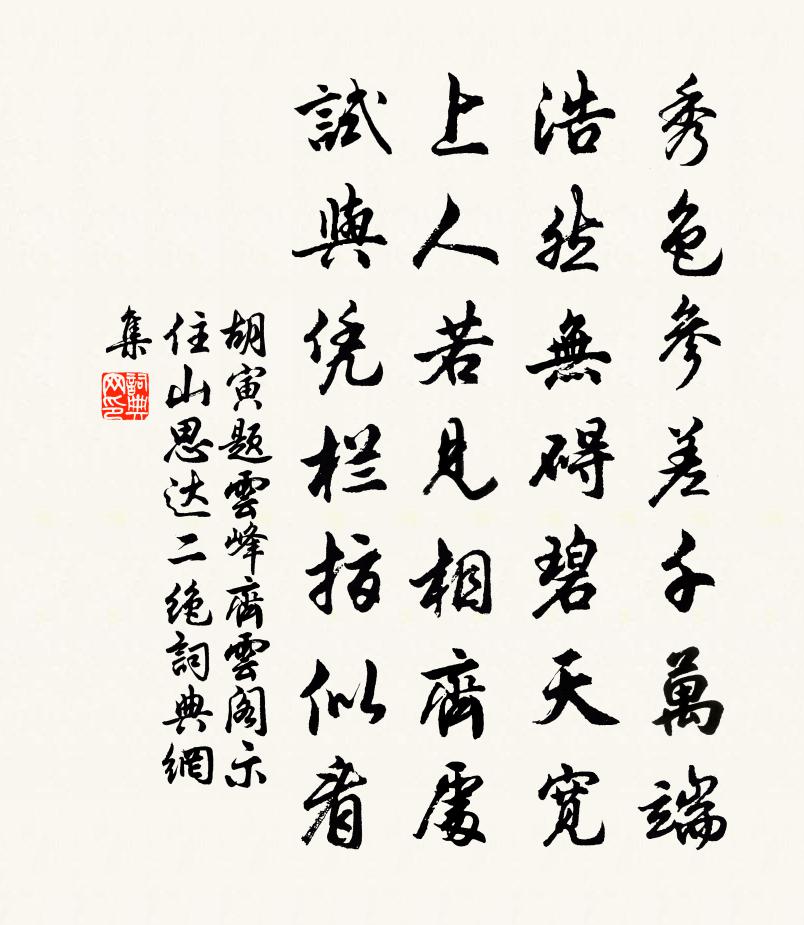 秀色參差千萬端
浩然無碍碧天寛
上人若見相齊處
試與凭栏指似看
胡寅題雲峰齊雲阁示
住山思达二絶詞典網
集
詞典
网印